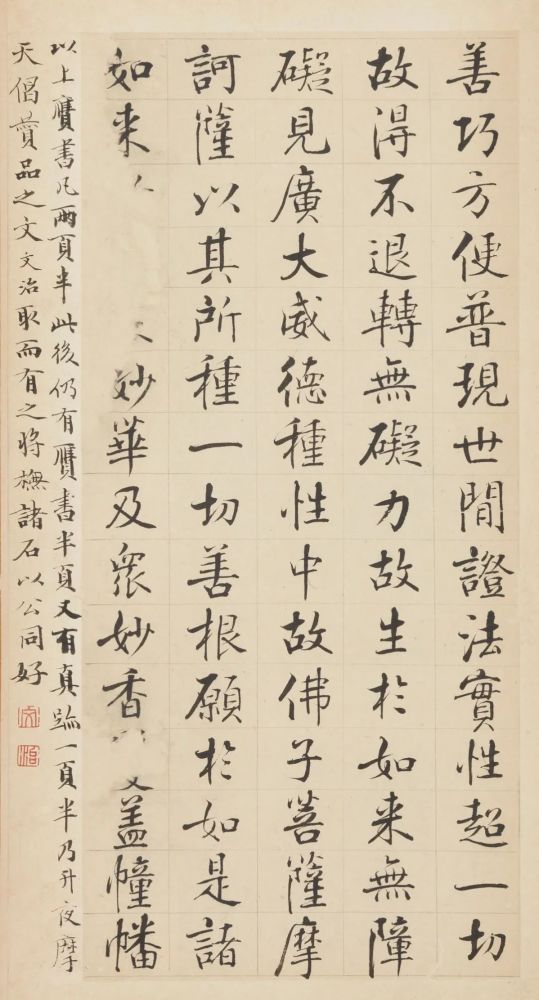 善巧方便普現世間證法實性超一切
故得不退轉無礙力故生於如来無障
礙見廣大威德種性中故佛子菩薩摩
訶薩以其所種一切善根願於如是諸
如来 妙華及衆妙香 蓋幢幡
以上贗書凡兩頁半此後仍有贗書半頁又有真蹟一頁半乃升夜摩
天偈贊品之文文治取而有之將橅諸石以公同好